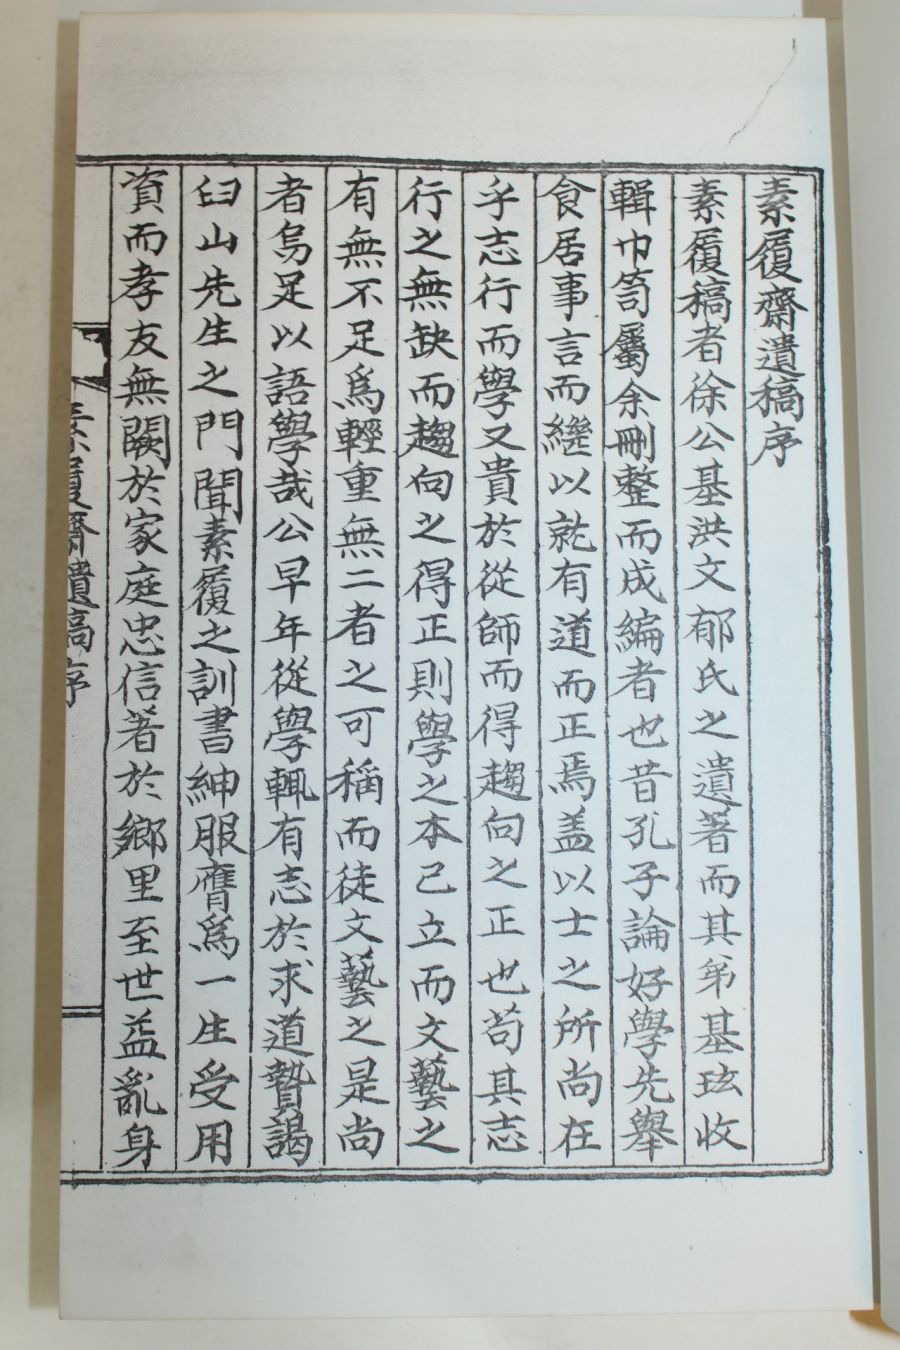 素履齋遺稿序
素履稿者徐公基洪文郁氏之遺著而其弟基玹收
輯巾笥屬余刪整而成編者也昔孔子論好學先舉
食居事言而繼以就有道而正焉盖以士之所尚在
乎志行而學又貴於從師而得趨向之正也苟其志
行之無缺而趨向之得正則學之本已立而文藝之
有無不足爲輕重無二者之可稱而徒文藝之是尚
者烏足以語學哉公早年從學輒有志於求道贄謁
臼山先生之門聞素履之訓書紳服膺爲一生受用
資而孝友無闕於家庭忠信著於鄉里至世益亂身
素履齋遺稿序